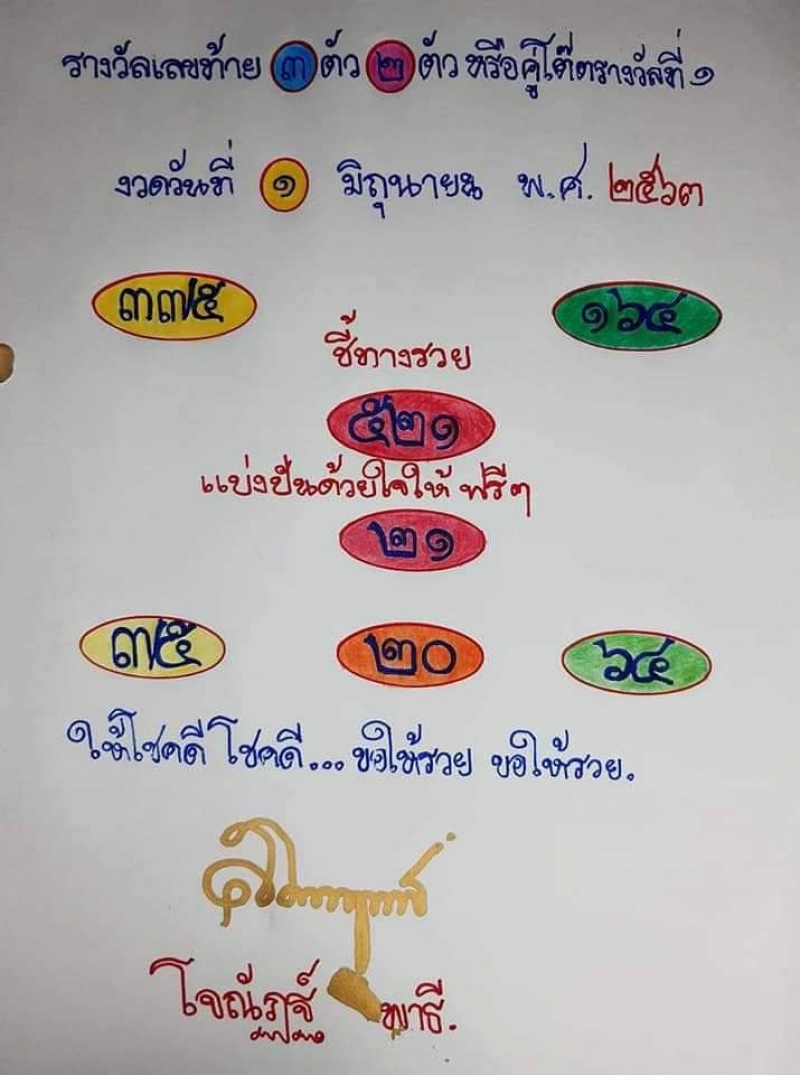 รางวัลเลขท้าย ๓ ตัว ๒ ตัว หรือคู่โต๊ดรางวัลที่ ๑
งวดวันที่ ๑ มิถุนายน พ.ศ. ๒๕๖๓
๓๗๕ ๑๖๔
ชี้ทางรวย
๕๒๑
แบ่งปันด้วยใจให้ ฟรีๆ
๒๑
๗๕ ๒๐ ๖๔
ให้โชคดี โชคดี... ขอให้รวย ขอให้รวย.
พารี.